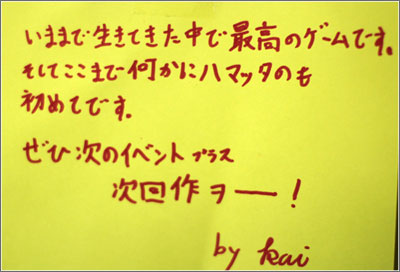 いままで生きてきた中で最高のゲームです。
そしてここまで何かにハマッタのも
初めてです。
ぜひ次のイベントプラス
次回作ヲー！
by kai